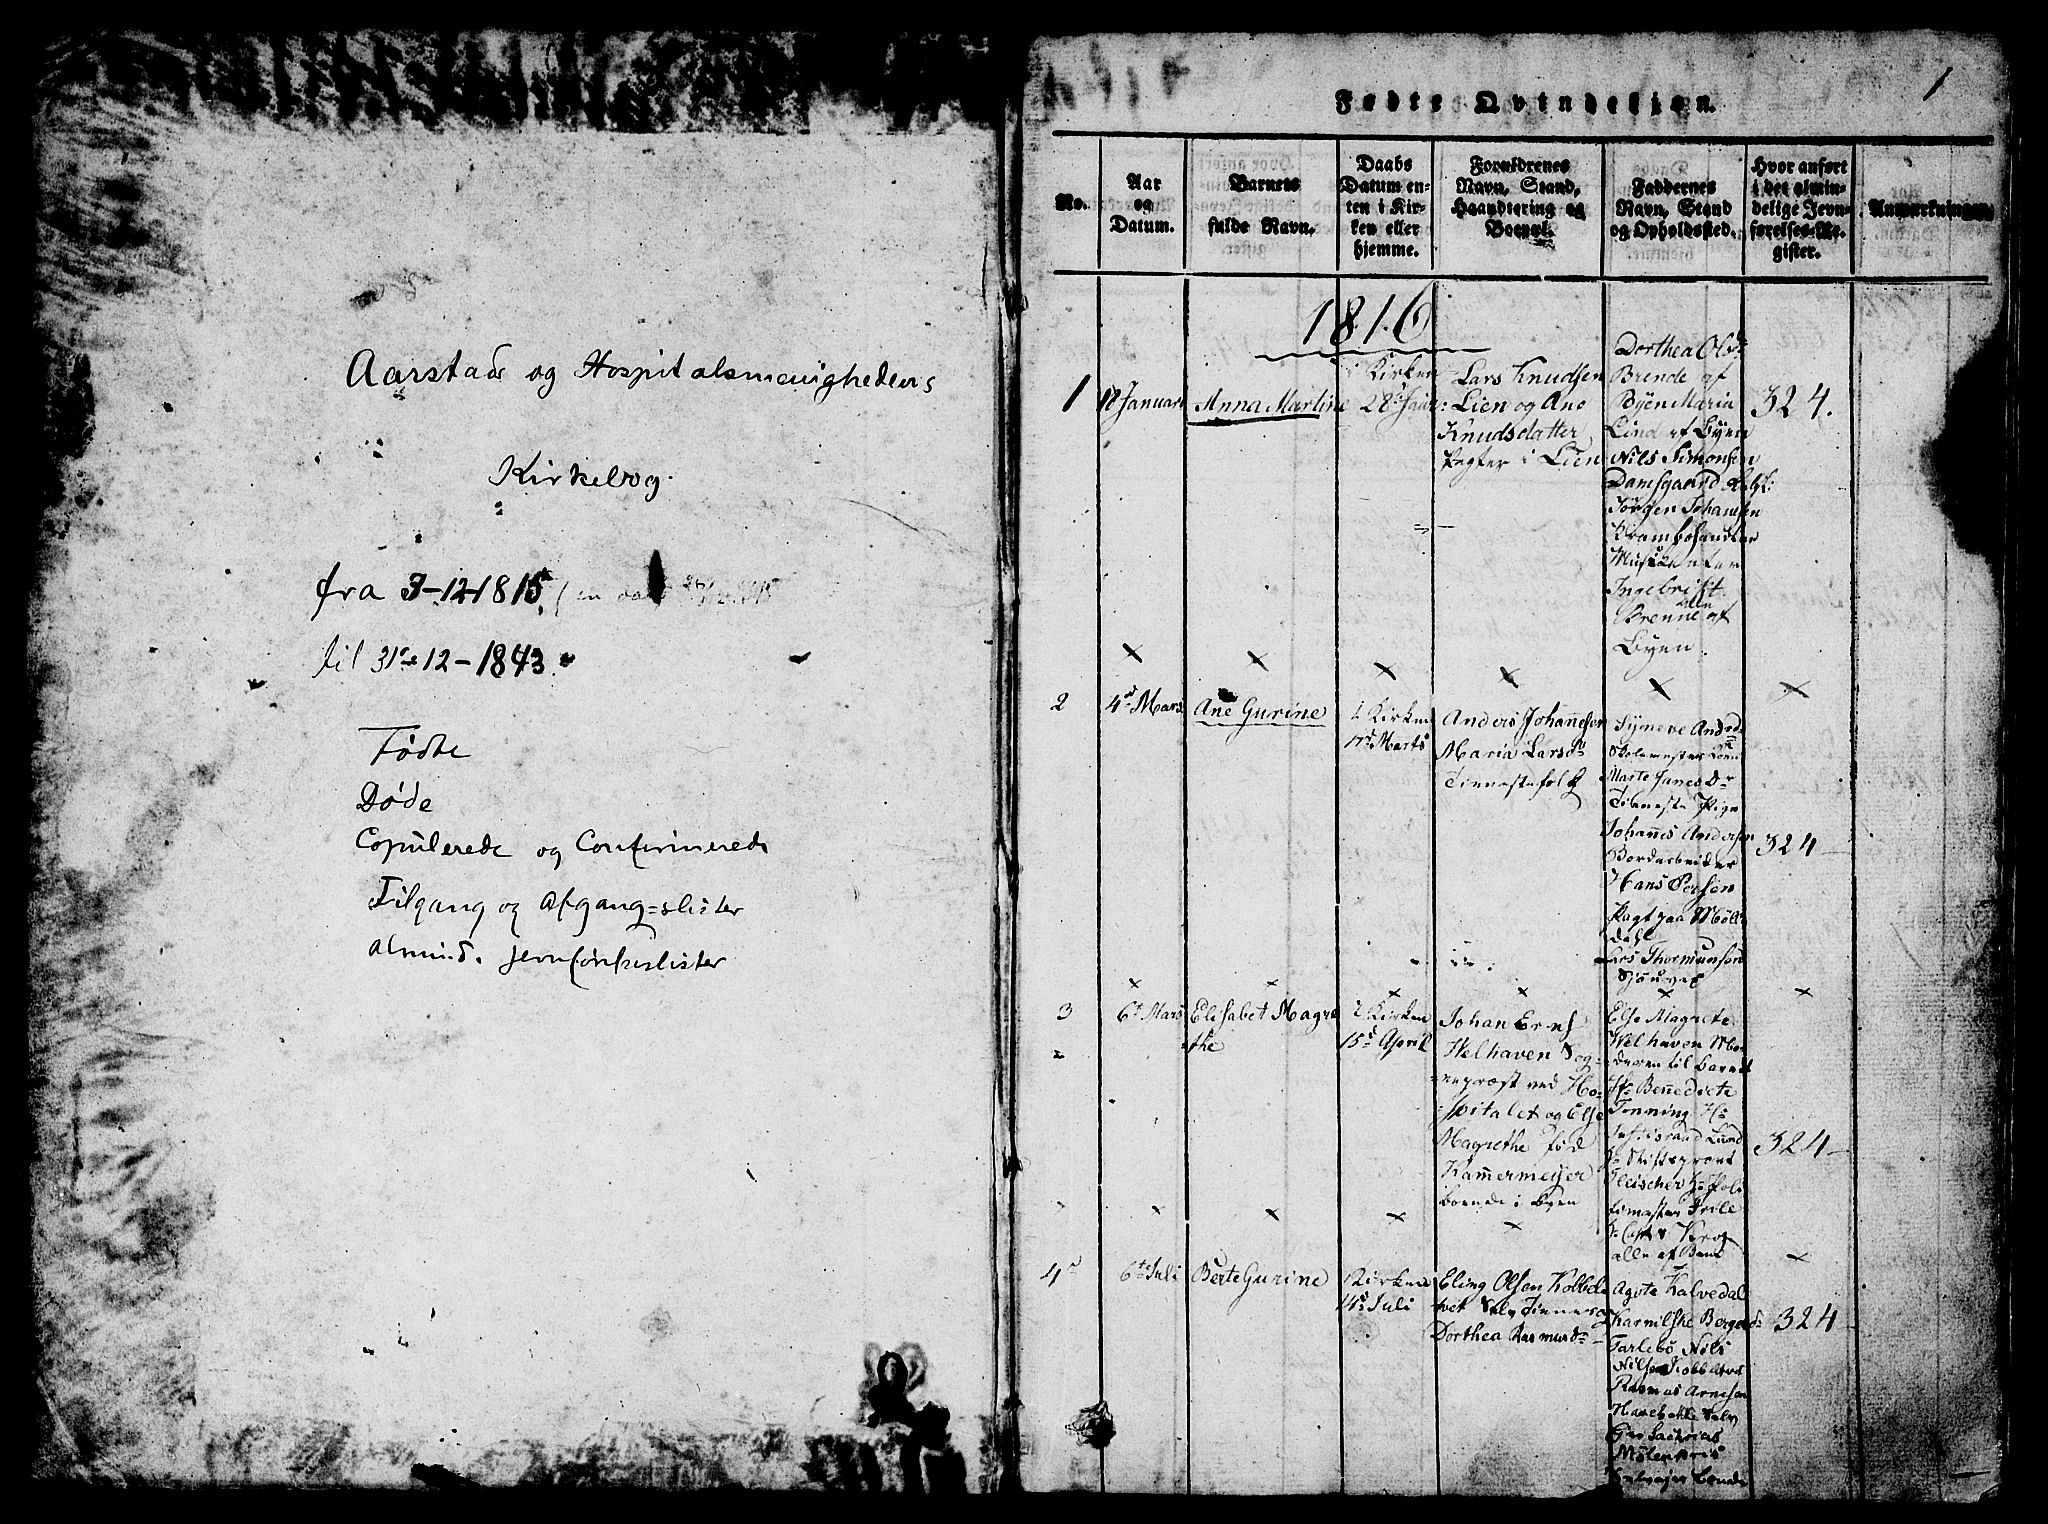 Aarstads og Hospitalsmenighedens
Kirkebog.
fra 3-12-1815
til 31te-12-1843.
Fødte
Døde
Copulerede og Confirmerede
Tilgang og Afgang=slister
almind. jevnførelseslister
1
Fødte Qvindekjøn.
No.
Aar
og
Datum.
Barnets
fulde Navn.
Daabs
Datum en-
ten i Kir-
ken eller
hjemme.
Forældrenes
Navn, Stand,
Haandtering og
Boepæl.
Faddernes
Navn, Stand
og Opholdssted.
Hvor anført
i det almin-
delige Jevn-
førelses-Re-
gister.
Anmærkninger.
1816
1
18 Januari
Anna Martine
i Kirken
28de Jan:
Lars Knudsen
Lien og Ane
Knudsdatter
Pagter i Lien
Dorthea Olsd:
Brende af
Byen Maria
Lind af Byen
Nils Simonsen
Damsgaard
Jørgen Johansen
Krambohandler
Ingebrikt
Brenne alle af
Byen.
324.
2
4de Mars
Ane Gurine
i Kirken
17de Marts
Anders Johannesen
Maria Larsdr
Tienestefolk
Synneve Andrd:
Marte Jansdr
Tieneste Pige
Johannes Andersen
Bordarbeider
Hans Persen
Pagt paa Møll-
dahl
Lars Thormunsen
324
3
6te Mars
Elisabet Magre
the
i Kirken
15de April
Johan Ernst
Welhaven Sog-
nepræst ved Ho-
spitalet og Else
Magrethe fød
Kammermeijer
boende i Byen
Else Magrete
Welhaven Mo-
deren til Barnet
Fr: Benedicte
Tonning Hr
Justisraad Lund
Hr Stiftsprovst
Fleischer Hr Poli
timester Friele
Hr Capt v Krog
alle af Byen
324
4de
6te Juli
Berte Gurine
i Kirken
14de Juli
Eling Olsen Kolbe
tvet Selv tienere og
Dorthea Rasmusdr
Agote Kalvedal
Karnilske Bergesd:
Tarlebø Nils
Nilsen Kobbeltvet
Rasmus Arnesen
324